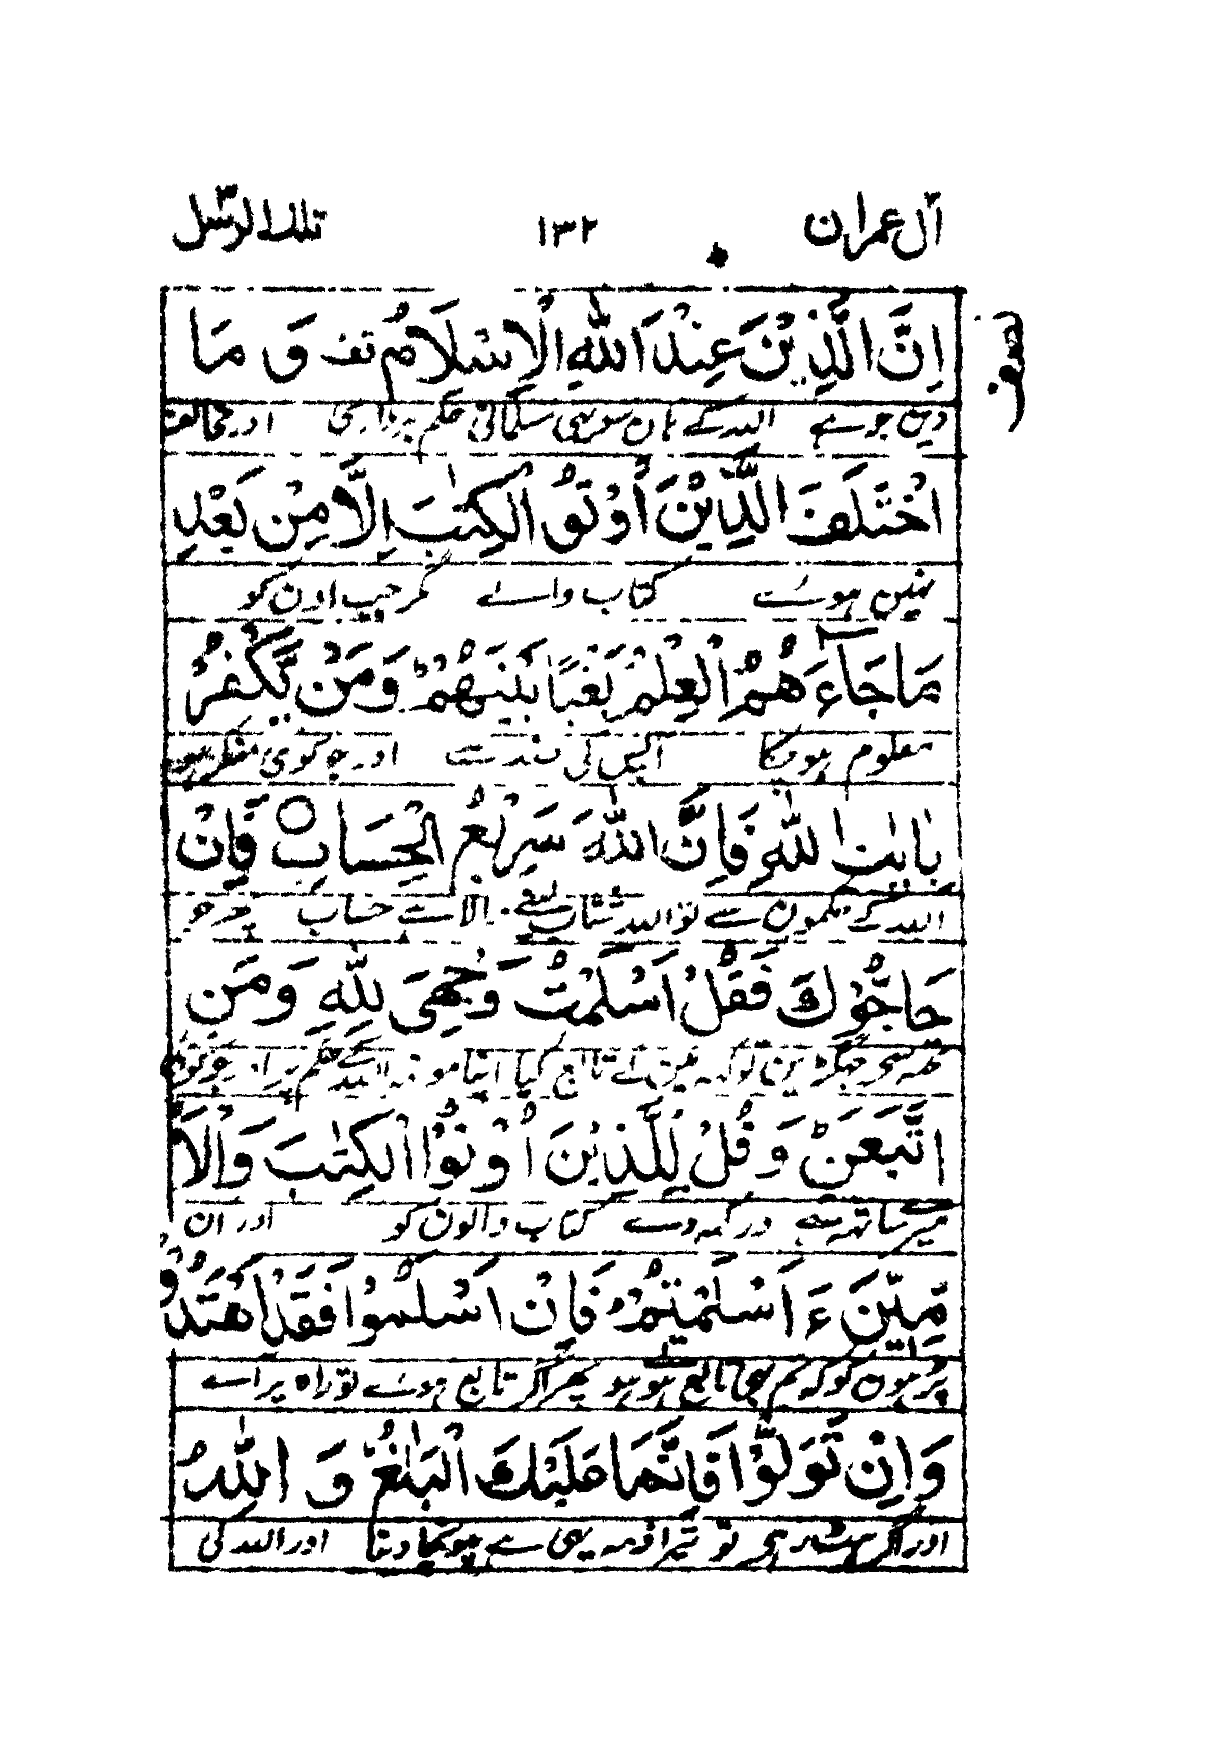 آل عمران ١٣٢ تلك الرسل ٣
اِنَّ الَّذِيْنَ عِنْدَ اللّٰهِ الْاِسْلَامُ قف وَ مَا
دین جو ہے اللہ کے ہاں سو یہی مسلمانی حکم برداری اور مخالف
اخْتَلَفَ الَّذِيْنَ اُوْتُوا الْكِتٰبَ اِلَّا مِنْ بَعْدِ
نہیں ہوئے کتاب والے مگر جب اون کو
مَا جَآءَ هُمُ الْعِلْمُ بَغْيًا بَيْنَهُمْ ط وَمَنْ يَّكْفُرْ
معلوم ہو چکا آپس کی ضد سے اور جو کوئی منکر ہو
بِاٰيٰتِ اللّٰهِ فَاِنَّ اللّٰهَ سَرِيْعُ الْحِسَابِ ○ فَاِنْ
اللہ کے حکموں سے تو اللہ شتاب لینے والا ہے حساب پھر جو
حَاجُّوْكَ فَقُلْ اَسْلَمْتُ وَجْهِيَ لِلّٰهِ وَمَنِ
تجھ سے جھگڑیں تو کہہ میں نے تابع کیا اپنا مونہہ اللہ کے حکم پر اور جو کوئی
اتَّبَعَنِ ط وَ قُلْ لِّلَّذِيْنَ اُوْتُوا الْكِتٰبَ وَالْاُ
میرے ساتھ ہے اور کہہ دے کتاب والوں کو اور ان
مِّيّٖنَ ءَ اَسْلَمْتُمْ ط فَاِنْ اَسْلَمُوْا فَقَدِ اهْتَدَوْا
پڑہوں کو کہ تم بھی تابع ہوتے ہو پھر اگر تابع ہوئے تو راہ پر آے
وَاِنْ تَوَلَّوْا فَاِنَّمَا عَلَيْكَ الْبَلٰغُ ط وَ اللّٰهُ
اور اگر ہٹ رہے تو تیرا ذمہ یہی ہے پہونچا دینا اور اللہ کی